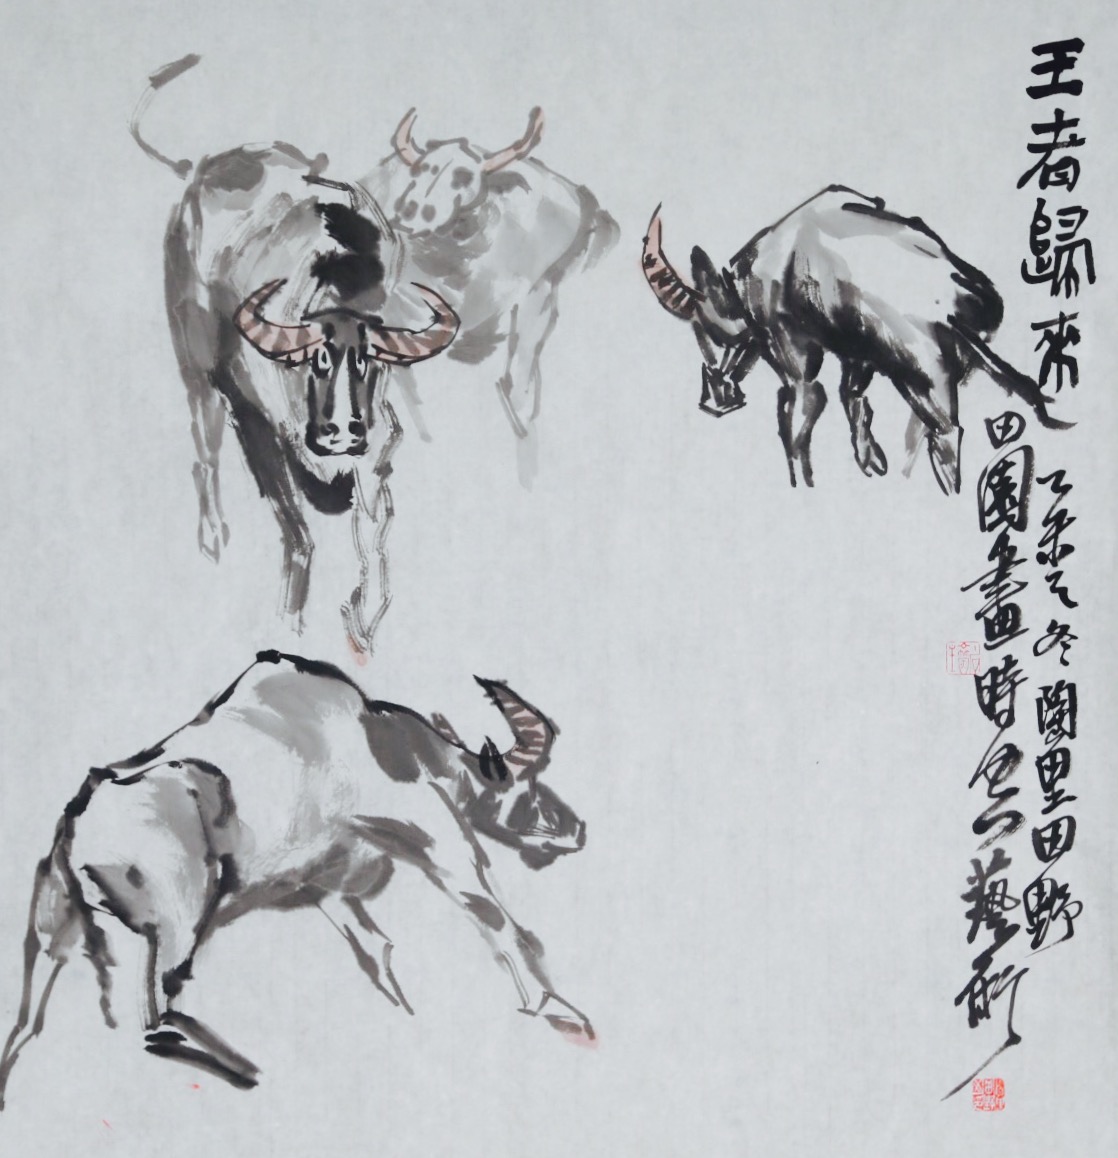 王者歸來
乙未之冬陶里田野
田園畫時藝術